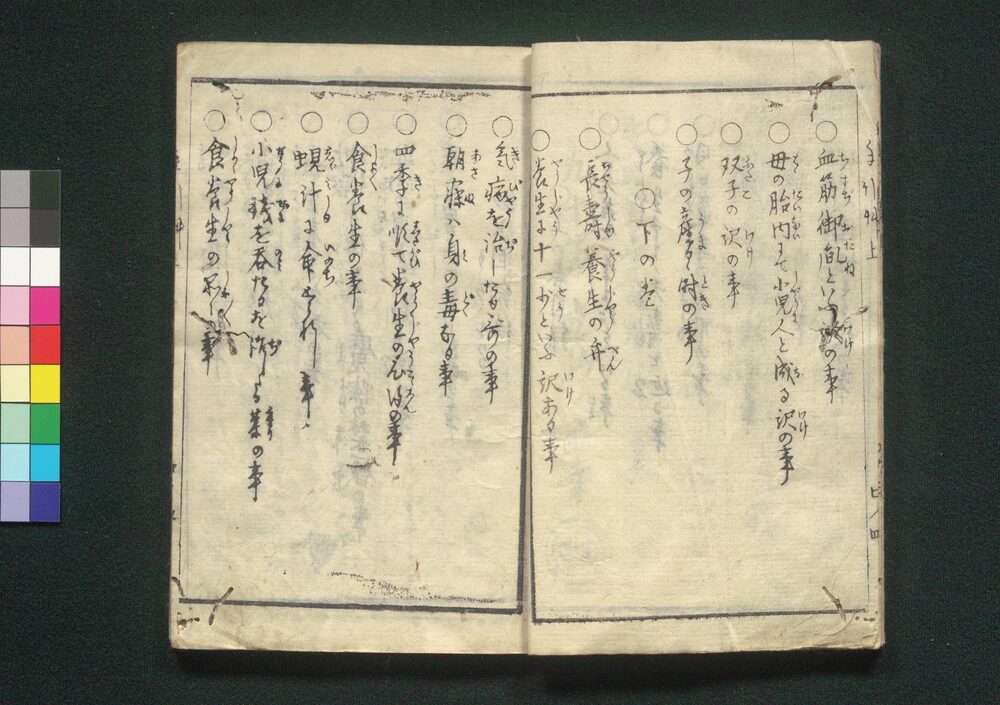 手引草 上
○血筋御胤といふ訳の事
○母の胎内にて小児人と成る訳の事
○双子の訳の事
○子の産るゝ時の事
○下の巻
○長寿養生の弁
○養生に十一少といふ訳ある事
○気病を治したる奇の事
○朝寐ハ身の毒なる事
○四季に順て養生の心得の事
○食養生の事
○蜆汁に命とられ 事
○小児銭を呑たるを治する薬の事
○食養生の 事